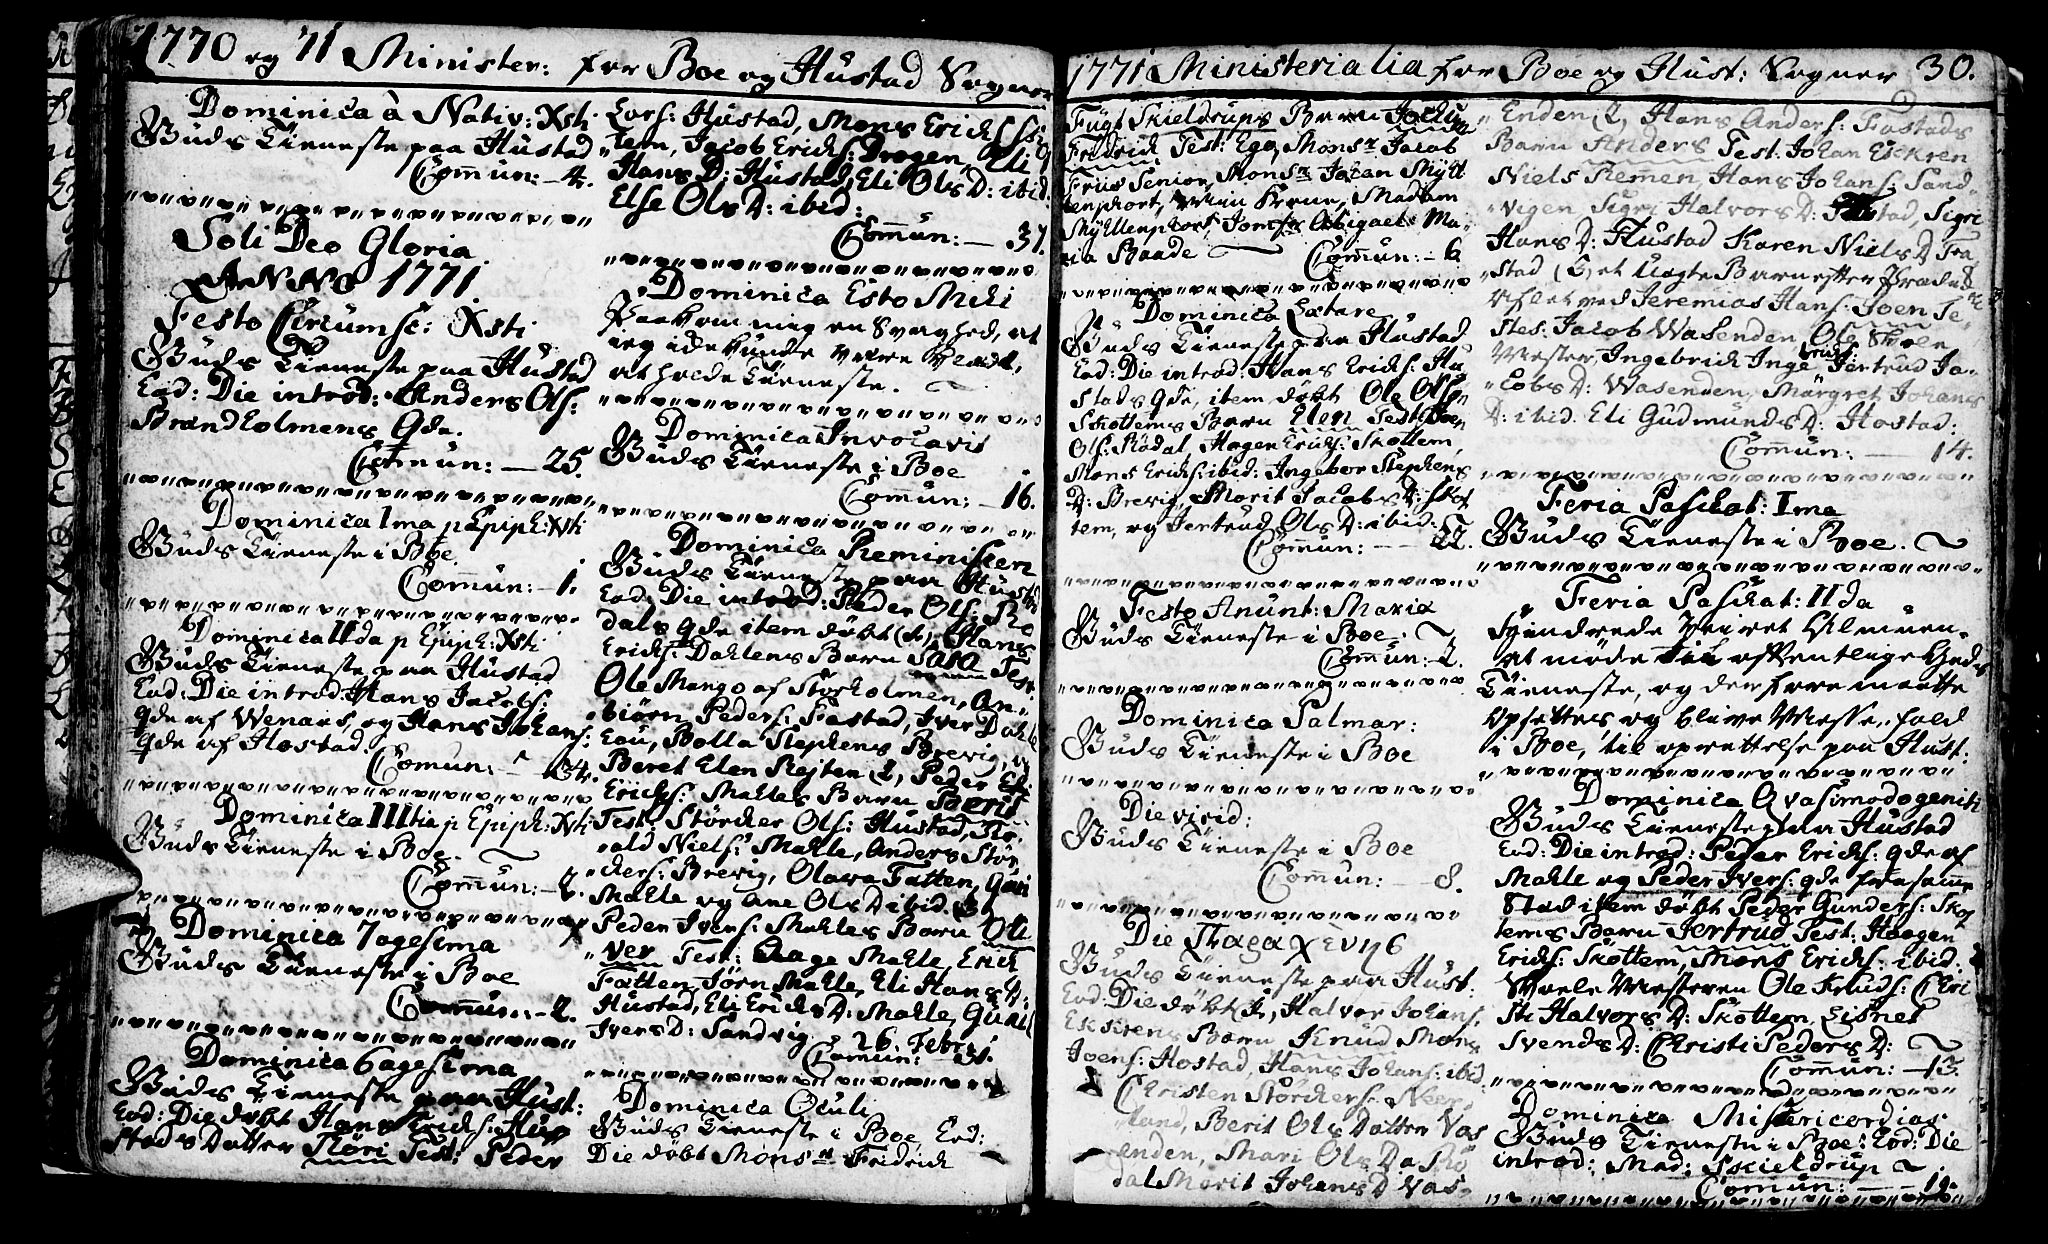 1770 og 71 Minister: for Boe og Hustad Sogner
Dominica à Nativ: Xsti
Guds Tieneste paa Hustad
Com̄un: – 4.
Soli Deo Gloria
ANNO 1771.
Festo Circumsc: Xsti
Guds Tieneste paa Hustad
Eod: Die introd: Anders Ols:
Brandholmens Qde.
Com̄un: – 25.
Dominica Ima p Epiph: Xsti
Guds Tieneste i Boe
Com̄un: – 1.
Dominica IIda p Epiph: Xsti
Guds Tieneste paa Hustad
Eod: Die introd: Hans Jacobs:
Qde af Wenaas, og Hans Johans:
Qde af Hostad.
Com̄un:
Dominica IIItia p Epiph: Xsti
Guds Tieneste i Boe.
Com̄un: – 2.
Dominica 7agesima
Guds Tieneste i Boe
Com̄un: – 2.
Dominica 6agesima
Guds Tieneste paa Hust:
Eod: Die døbt Hans Erichs: Hu
stads Datter Støri Test: Peder
Lars: Hustad, Mons Erichs Sk
tem, Jacob Erichs: Drogen, Eli
Hans D: Hustad, Eli Ols D: ibid.
Else Ols D: ibid:
Com̄un: – 37.
Dominica Esto Mihi
Paakom mig en Svaghed, at
ieg ide kunde være
at holde Tieneste.
Dominica Invocavit
Guds Tieneste i Boe
Com̄un: – 16.
Dominica Reminiscere
Guds Tieneste paa Hustad
Eod: Die introd: Peder Ols: Rø
dals qde item døbt (1, Hans
Erichs: Dahlens Barn Sara Test:
Ole Mango af Storholmen, An-
biørn Peders: Fastad, Iver Dahle
Eau, Bolla Stephens Brevig, og
Beret Elen Rejten (2, Peder
Erichs: Mahles Barn Berit
Test: Størcker Ols: Hustad,
ald Niels: Mahle, Anders Stør
chers: Brevig, Olava Tatten, Guri
Mahle og Ane Ols D ibid. (3,
Peder Ivers: Mahles Barn Oli
ver Test: Aage Mahle, Erich
Tatten, Jørn Mahle, Eli Hans D:
Hustad, Eli Erichs D: Mahle, Guri
Ivers D: Sandvig 26. Febr:
Com̄un: 31.
Dominica Oculi
Guds Tieneste i Boe Eod:
Die døbt Monsr Fridrich
1771 Ministerialia for Boe og Hust: Sogner 30.
Fügl Skieldrups Barn Jochum
Fridrich Test: Ego, Monsr Jacob
Friis Senior, Monsr Johan Mÿlt
lenphort, Min Kone, Madam
Mÿltlenphort, Jomfr Abigael Ma-
ria Baade Com̄un: – 6
Dominica Lætare
Guds Tieneste paa Hustad
Eod: Die introd: Hans Erichs: Hu
stads qde, item døbt Ole Ols:
Skottems Barn Elen Test: Joen
Ols: Rødal, Haagen Erichs: Skottem,
Mons Erichs: ibid: Ingebor Stephens
D: Brevig, Marit Jacobs D: Skot
tem, og Jertrud Ols D: ibid:
Com̄un: – 22.
Festo Anunt: Maria
Guds Tieneste i Boe.
Com̄un: 2.
Dominica Palmar:
Guds Tieneste i Boe
Die virid:
Guds Tieneste i Boe
Com̄un: – 8.
Die Παρασκευης
Guds Tieneste paa Hust:
Eod: Die døbt (1, Halvor Johans:
Eckrens Barn Knud Mons
Joens: Hostad, Hans Johans: ibid.
Christen Størchers: Neer
land, Berit Ols Datter Vas
enden, Mari Ols D Skiø
dal Marit Johans D Vas-
Enden, (2, Hans Anders: Fastads
Barn Anders Test: Johan Eckren
Niels Remen, Hans Johans: Sand-
vigen, Sigri Halvors D: Fastad, Sigri
Hans D: Hustad Karen Niels D Fa
stad (3, et Uægte Barn efter
aflet ved Jeremias Hans: Soen Te-
stes: Jacob Wasenden, Ole Skole
Mester, Ingebrich Ingebrichs: Jertrud Ja-
cobs D: Wasenden, Margret Johans
D: ibid. Eli Gudmunds D: Hostad:
Com̄un: – 14.
Feria Paschat: Ima
Guds Tieneste i Boe.
Feria Paschat: IIda
hindrede Veiret Almuen
at møde til offentlige Guds
Tieneste, og derfore maatte
opsettes og blive Messe-fald
i Boe, til oprettelse paa Hust:
Dominica Qvasimodogeniti
Guds Tieneste paa Hustad
Eod: Die introd: Peder Erichs: qde af
Mahle og Peder Ivers: qde fra samme
Stad item døbt Peder Gunders: Skot
tems Barn Jertrud Test: Haagen
Erichs: Skottem, Mons Erichs: ibid.
Skole Mesteren Ole Knuds: Chri
sti Halvors D: Skottem, Lisbet
Svends D: Christi Peders D:
Com̄un: – 13.
Dominica Misericordias
Guds Tieneste i Boe: Eod: Die
introd: Mad: Skieldrup
Com̄un: – 19.